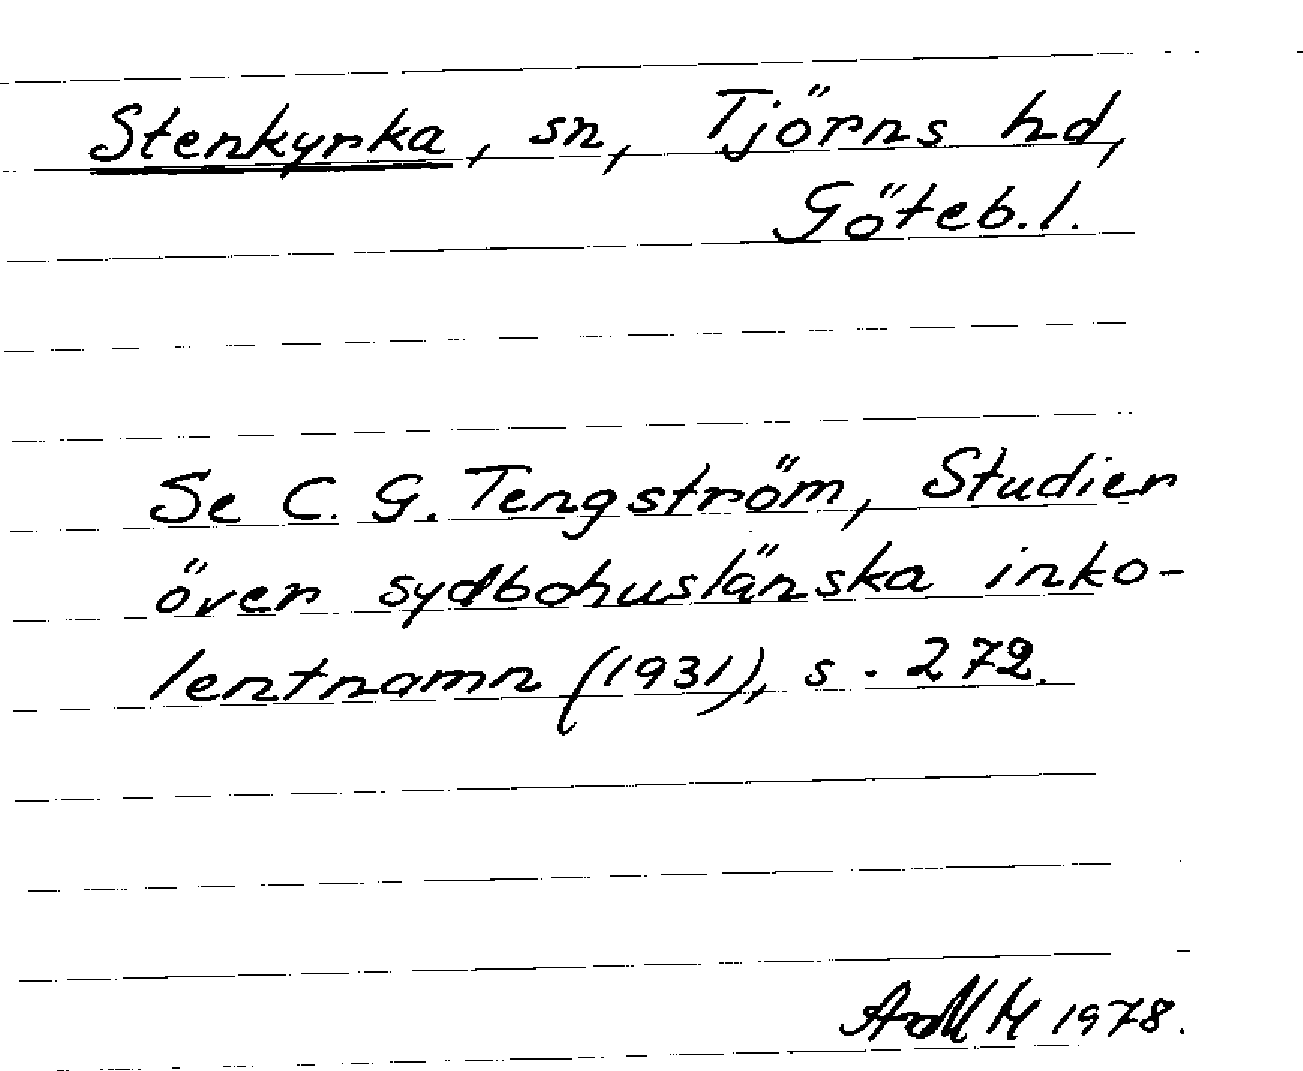 Stenkyrka, sn, Tjörns hd,
Göteb. l.
Se C. G. Tengström, Studier
över sydbohuslänska inko-
lentnamn (1931), s. 272.
1978.